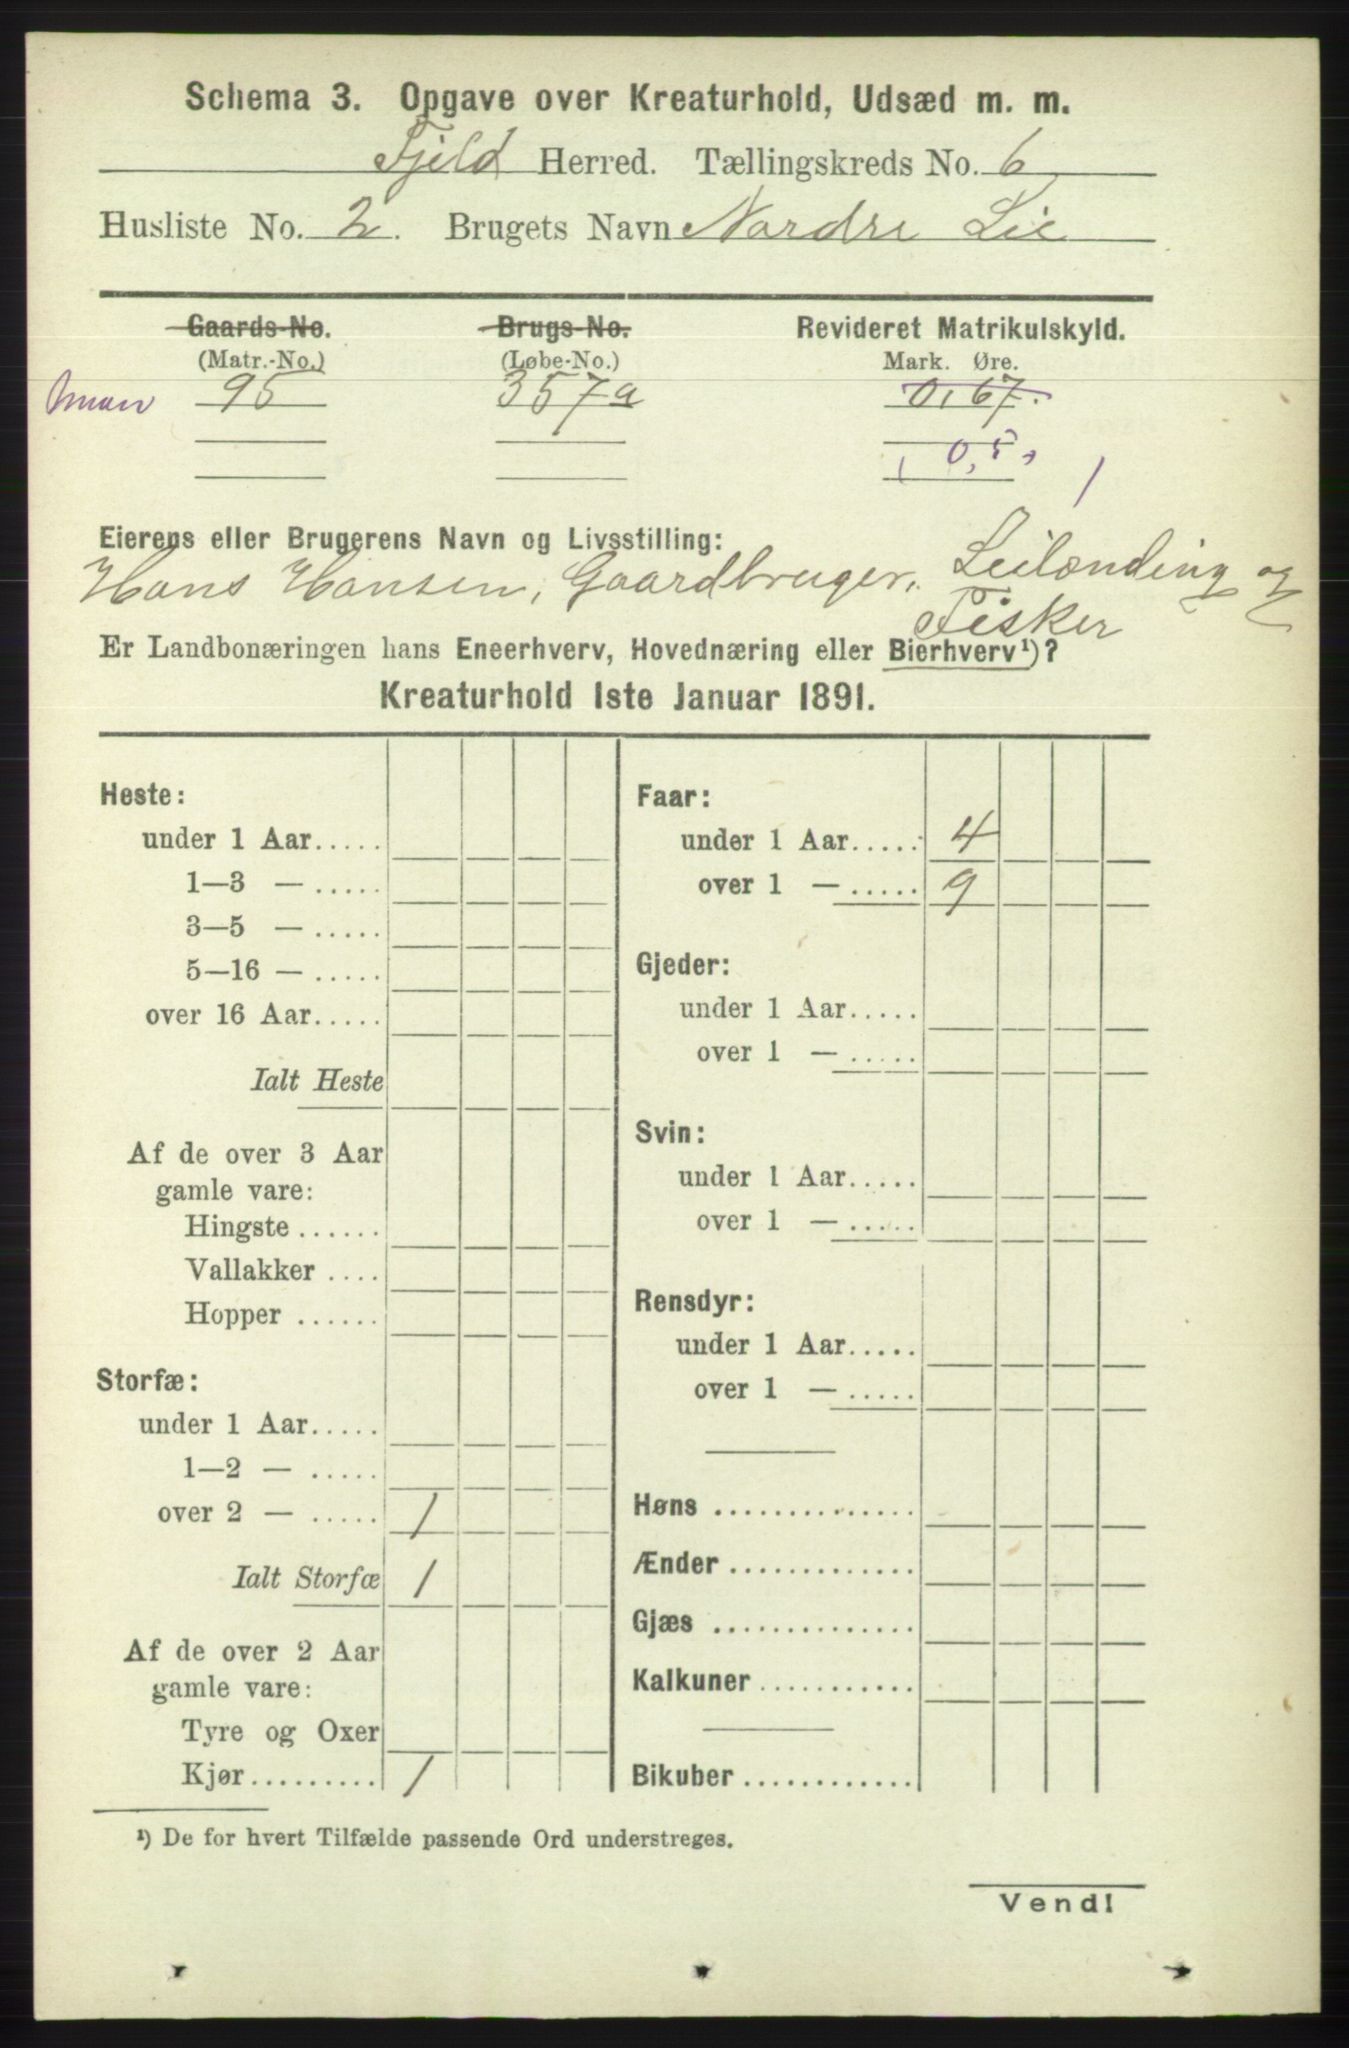 Schema 3. Opgave over Kreaturhold, Udsæd m. m.
Fjeld Herred. Tællingskreds No. 6
Husliste No. 2. Brugets Navn Nordre Lie
Gaards-No. Brugs-No. Revideret Matrikulskyld.
(Matr.-No.) (Løbe-No.) Mark. Øre.
95 357a 0,67.
0,5
Eierens eller Brugerens Navn og Livsstilling:
Hans Hansen, Gaardbruger, Leilænding og
Fisker
Er Landbonæringen hans Eneerhverv, Hovednæring eller Bierhverv¹)?
Kreaturhold 1ste Januar 1891.
Heste:
under 1 Aar.....
1—3 — .....
3—5 — .....
5—16 — .....
over 16 Aar.....
Ialt Heste
Af de over 3 Aar
gamle vare:
Hingste ......
Vallakker ....
Hopper ......
Storfæ:
under 1 Aar.....
1—2 — .....
over 2 — ..... 1
Ialt Storfæ 1
Af de over 2 Aar
gamle vare:
Tyre og Oxer
Kjør......... 1
Faar:
under 1 Aar..... 4
over 1 — ..... 9
Gjeder:
under 1 Aar.....
over 1 — .....
Svin:
under 1 Aar.....
over 1 — .....
Rensdyr:
under 1 Aar.....
over 1 — .....
Høns ..............
Ænder .............
Gjæs ..............
Kalkuner ...........
Bikuber ............
¹) De for hvert Tilfælde passende Ord understreges.
Vend!